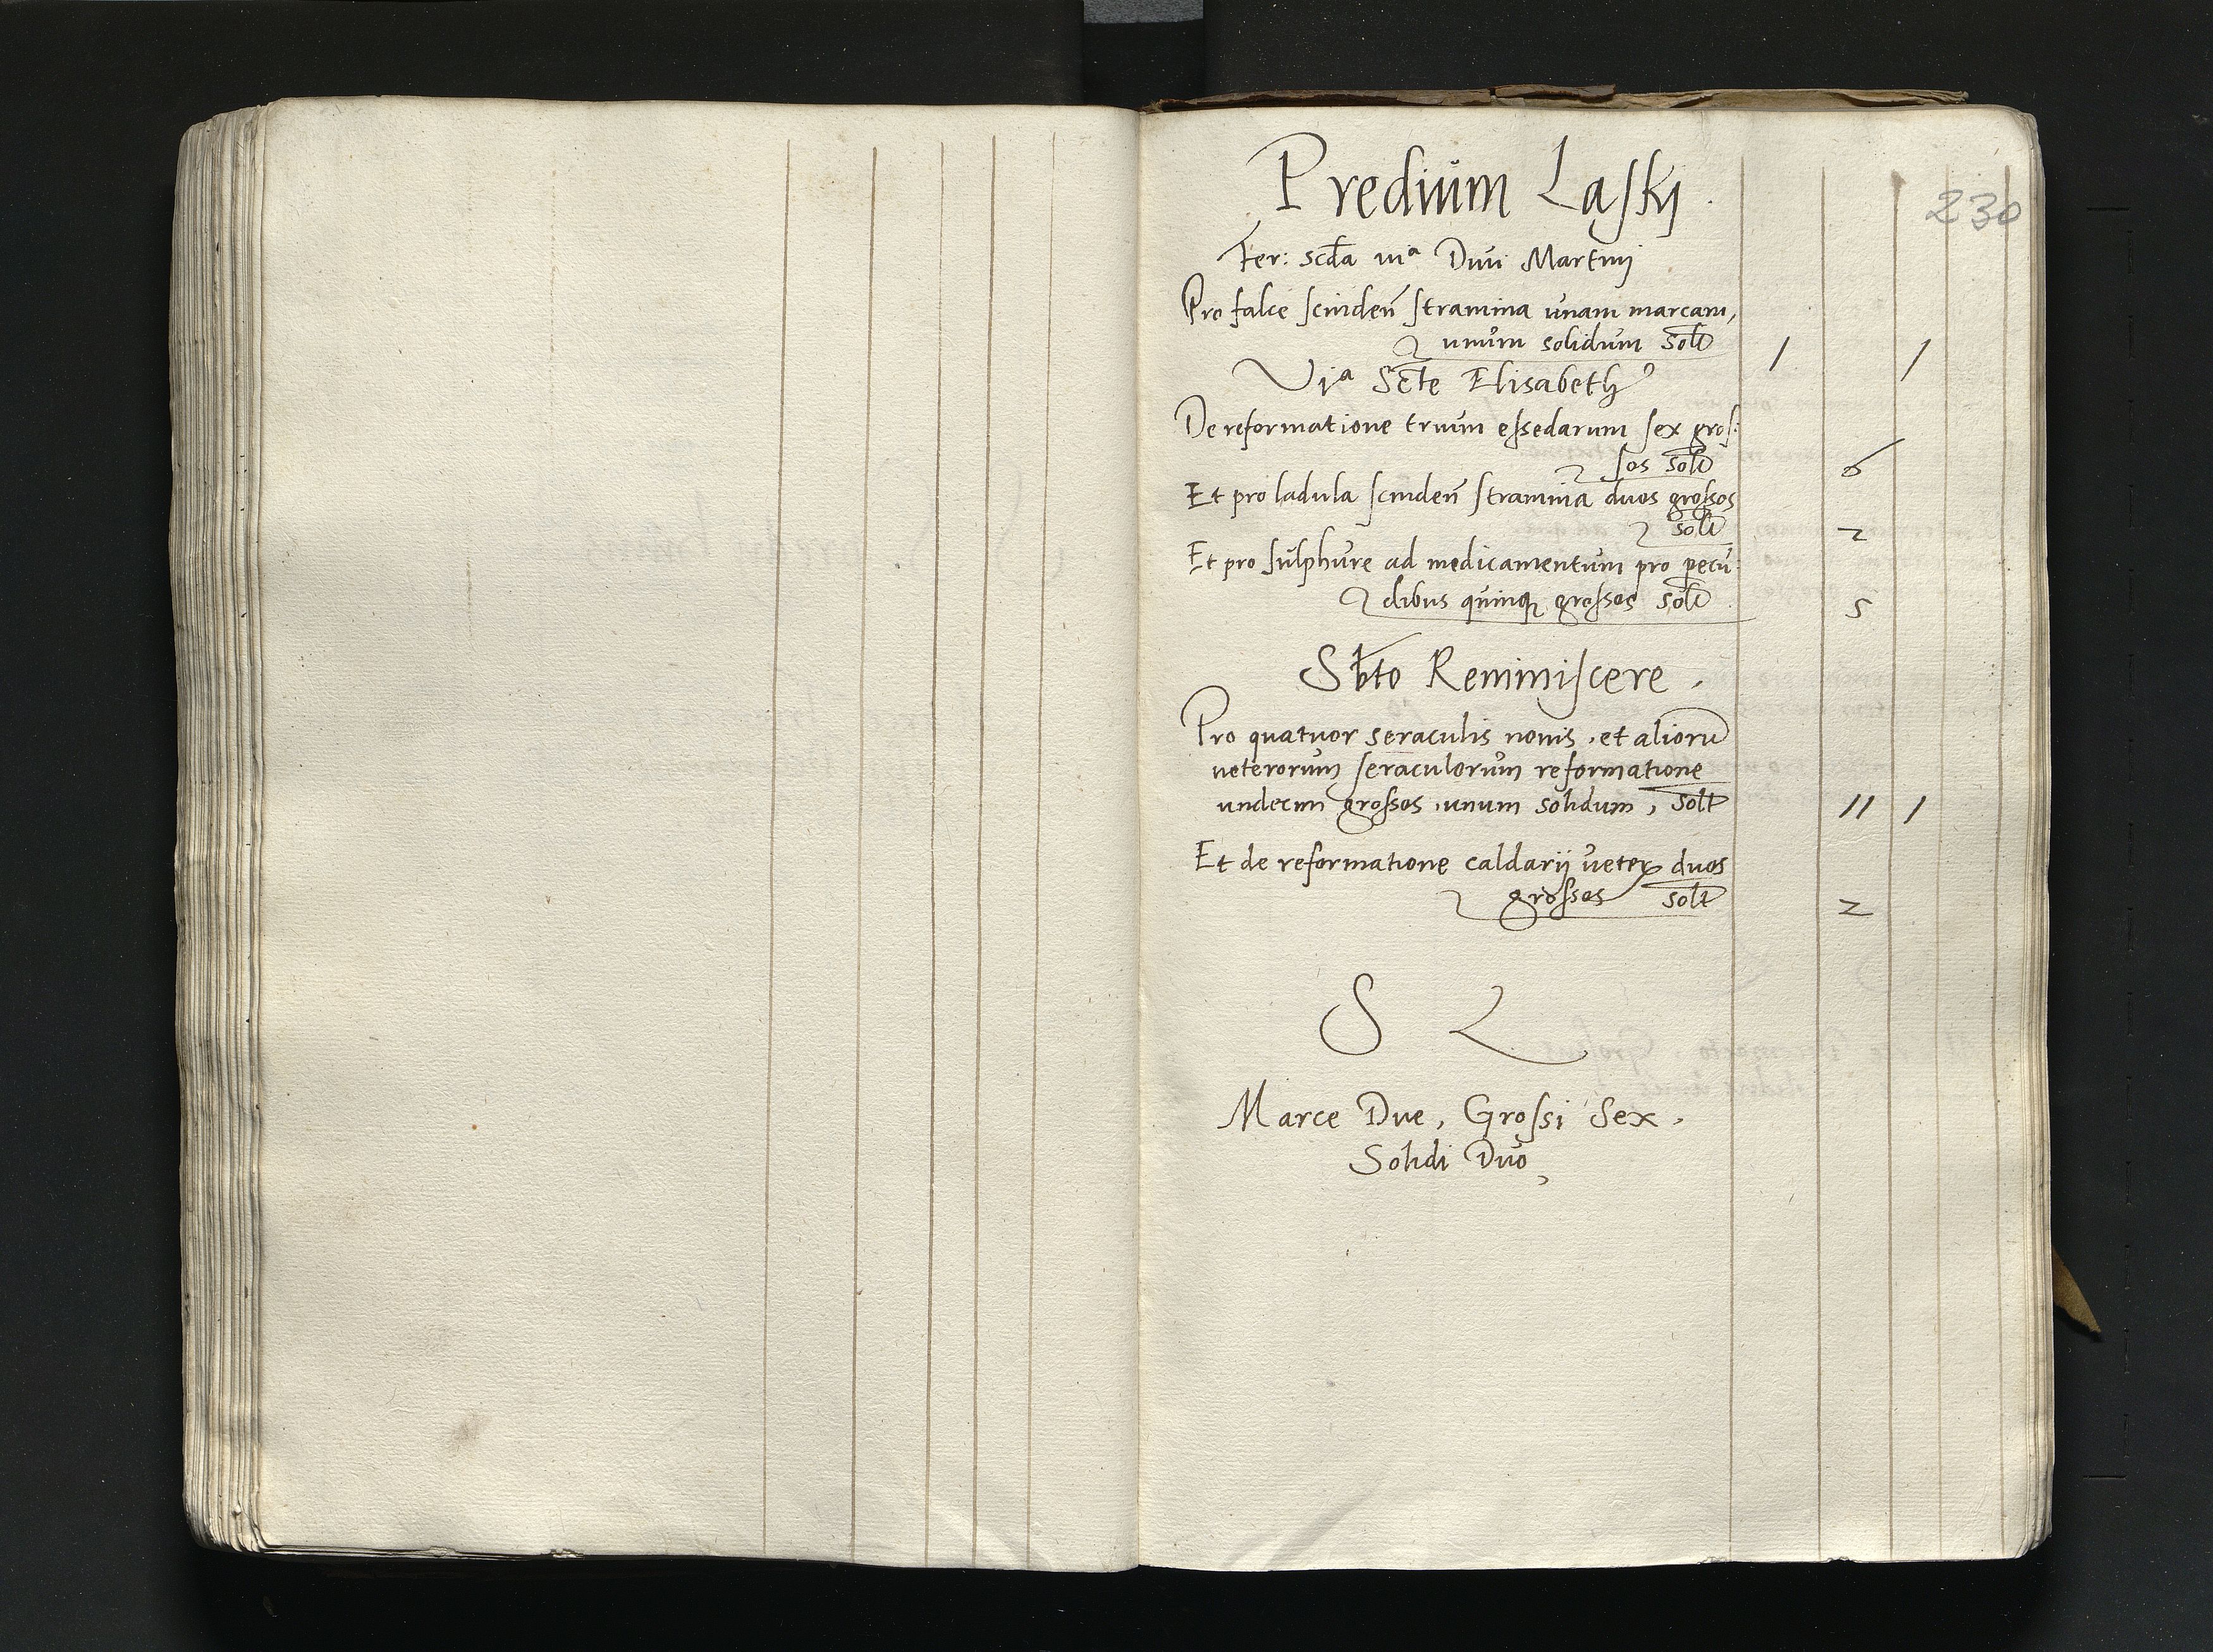 Predium Laskj
230
Fer: scda via Divi Martinj
Pro falce scinden stramina unam marcam,
unum solidum solt 1 1
Vja Scte Elisabeth
De reformatione trium essedarum sex gros:
sos solt 6
Et pro ladula scinden stramina duos grossos
solt 2
Et pro sulphure ad medicamentum pro pecu:
dibus quinq grossos solt 5
Sbto Reminiscere
Pro quatuor seraculis novis, et aliorum
veterorum seraculorum reformatione
undecim grossos, unum solidum, solt 11 1
Et de reformatione caldarij veter duos
grossos solt 2
S L
Marce Due, Grossi Sex,
Solidi Duo,